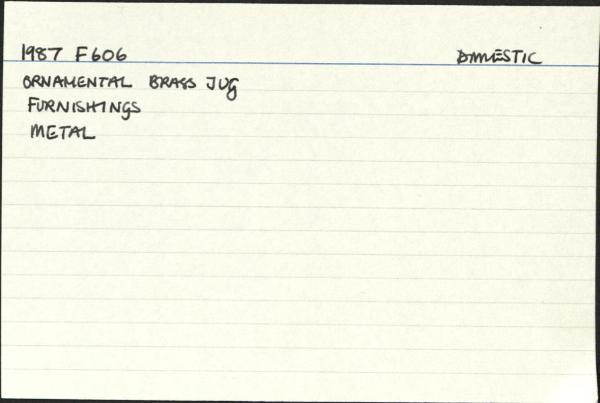 1987 F606 DOMESTIC
ORNAMENTAL BRASS JUG
FURNISHINGS
METAL